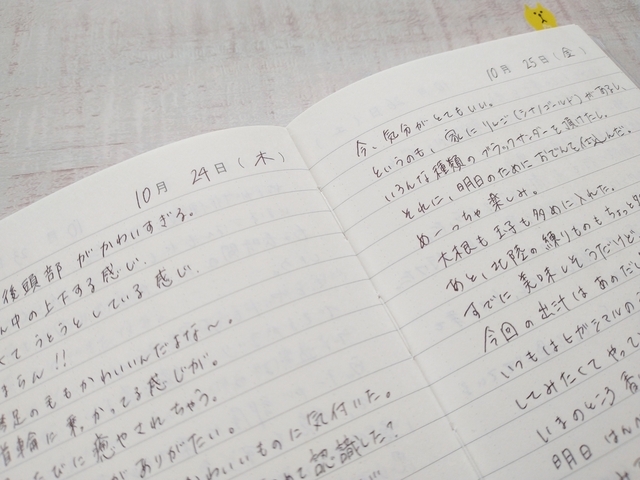 10月 24日(木)
後頭部がかわいすぎる。
中の上下する感じ。
てうとうとしている感じ。
らん!!
のももかわいいんだよな〜。
首輪に乗っかってる感じが。
たびに癒やされちゃう。
がありがたい。
かわいいものに気付いた。
めて認識した?
10月 25日(金)
今、気分がとてもいい。
というのも、家にりんご(シナノゴールド)があるし、
いろんな種類のブラックサンダーを頂けたし、
それに、明日のためにおでんを仕込んだ。
めーっちゃ楽しみ。
大根も玉子も多めに入れた。
あと、北陸の練りものもちょっと
すでに美味しそうだけど
今回の出汁はあのだし
いつもはヒガシマルの
してみたくてやって
いまのところ香
明日はんぺ